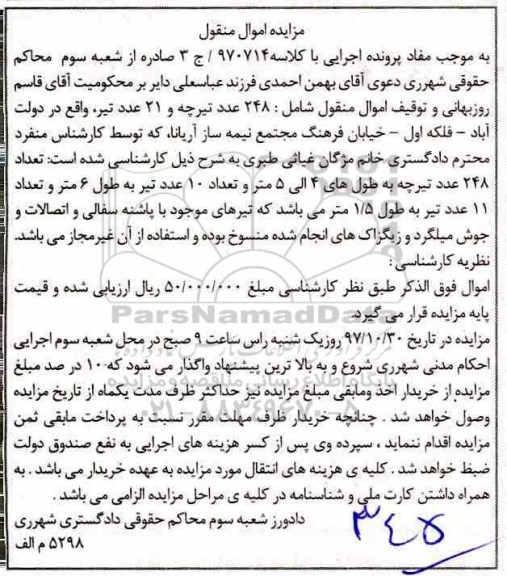 مزایده اموال منقول
به موجب مفاد پرونده اجرایی با کلاسه۹۷۰۷۱۴ / ج ۳ صادره از شعبه سوم محاکم
حقوقی شهرری دعوی آقای بهمن احمدی فرزند عباسعلی دایر بر محکومیت آقای قاسم
روزبهانی و توقیف اموال منقول شامل : ۲۴۸ عدد تیرچه و ۲۱ عدد تیر، واقع در دولت
آباد – فلکه اول – خیابان فرهنگ مجتمع نیمه ساز آریانا، که توسط کارشناس منفرد
محترم دادگستری خانم مژگان غیاثی طبری به شرح ذیل کارشناسی شده است: تعداد
۲۴۸ عدد تیرچه به طول های ۴ الی ۵ متر و تعداد ۱۰ عدد تیر به طول ۶ متر و تعداد
۱۱ عدد تیر به طول ۱/۵ متر می باشد که تیرهای موجود با پاشنه سفالی و اتصالات و
جوش میلگرد و زیگزاک های انجام شده منسوخ بوده و استفاده از آن غیرمجاز می باشد.
نظریه کارشناسی :
اموال فوق الذکر طبق نظر کارشناسی مبلغ ۵۰/۰۰۰/۰۰۰ ریال ارزیابی شده و قیمت
پایه مزایده قرار می گیرد.
ParsNamadData
مزایده در تاریخ ۹۷/۱۰/۳۰ روزیک شنبه راس ساعت ۹ صبح در محل شعبه سوم اجرایی
احکام مدنی شهرری شروع و به بالا ترین پیشنهاد واگذار می شود که ۱۰ در صد مبلغ
مزایده از خریدار اخذ ومابقی مبلغ مزایده نیز حداکثر ظرف مدت یکماه از تاریخ مزایده
وصول خواهد شد . چنانچه خریدار ظرف مهلت مقرر نسبت به پرداخت مابقی ثمن
مزایده اقدام ننماید ، سپرده وی پس از کسر هزینه های اجرایی به نفع صندوق دولت
ضبط خواهد شد . کلیه ی هزینه های انتقال مورد مزایده به عهده خریدار می باشد . به
همراه داشتن کارت ملی و شناسنامه در کلیه ی مراحل مزایده الزامی می باشد .
دادورز شعبه سوم محاکم حقوقی دادگستری شهرری
۵۲۹۸ م الف
۳۴۵